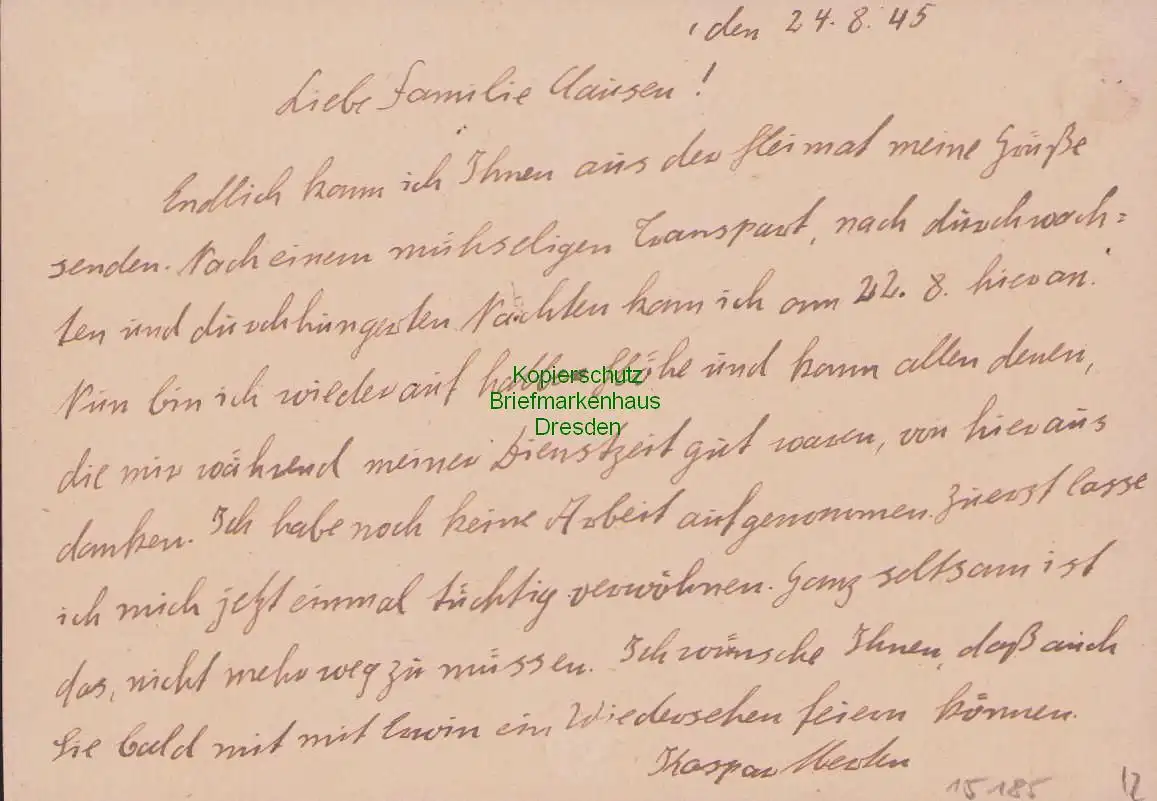 , den 24. 8. 45
Liebe Familie Clausen!
Endlich kann ich Ihnen aus der Heimat meine Grüße
senden. Nach einem mühseligen Transport, nach durchwach=
ten und durchhungerten Nächten kam ich am 22. 8. hier an.
Nun bin ich wieder auf halber Höhe und kann allen denen,
Kopierschutz
Briefmarkenhaus
Dresden
die mir während meiner Dienstzeit gut waren, von hier aus
danken. Ich habe noch keine Arbeit aufgenommen. Zuerst lasse
ich mich jetzt einmal tüchtig verwöhnen. Ganz seltsam ist
das, nicht mehr weg zu müssen. Ich wünsche Ihnen, daß auch
Sie bald mit mit Erwin ein Wiedersehen feiern können.
Kaspar
15185 12